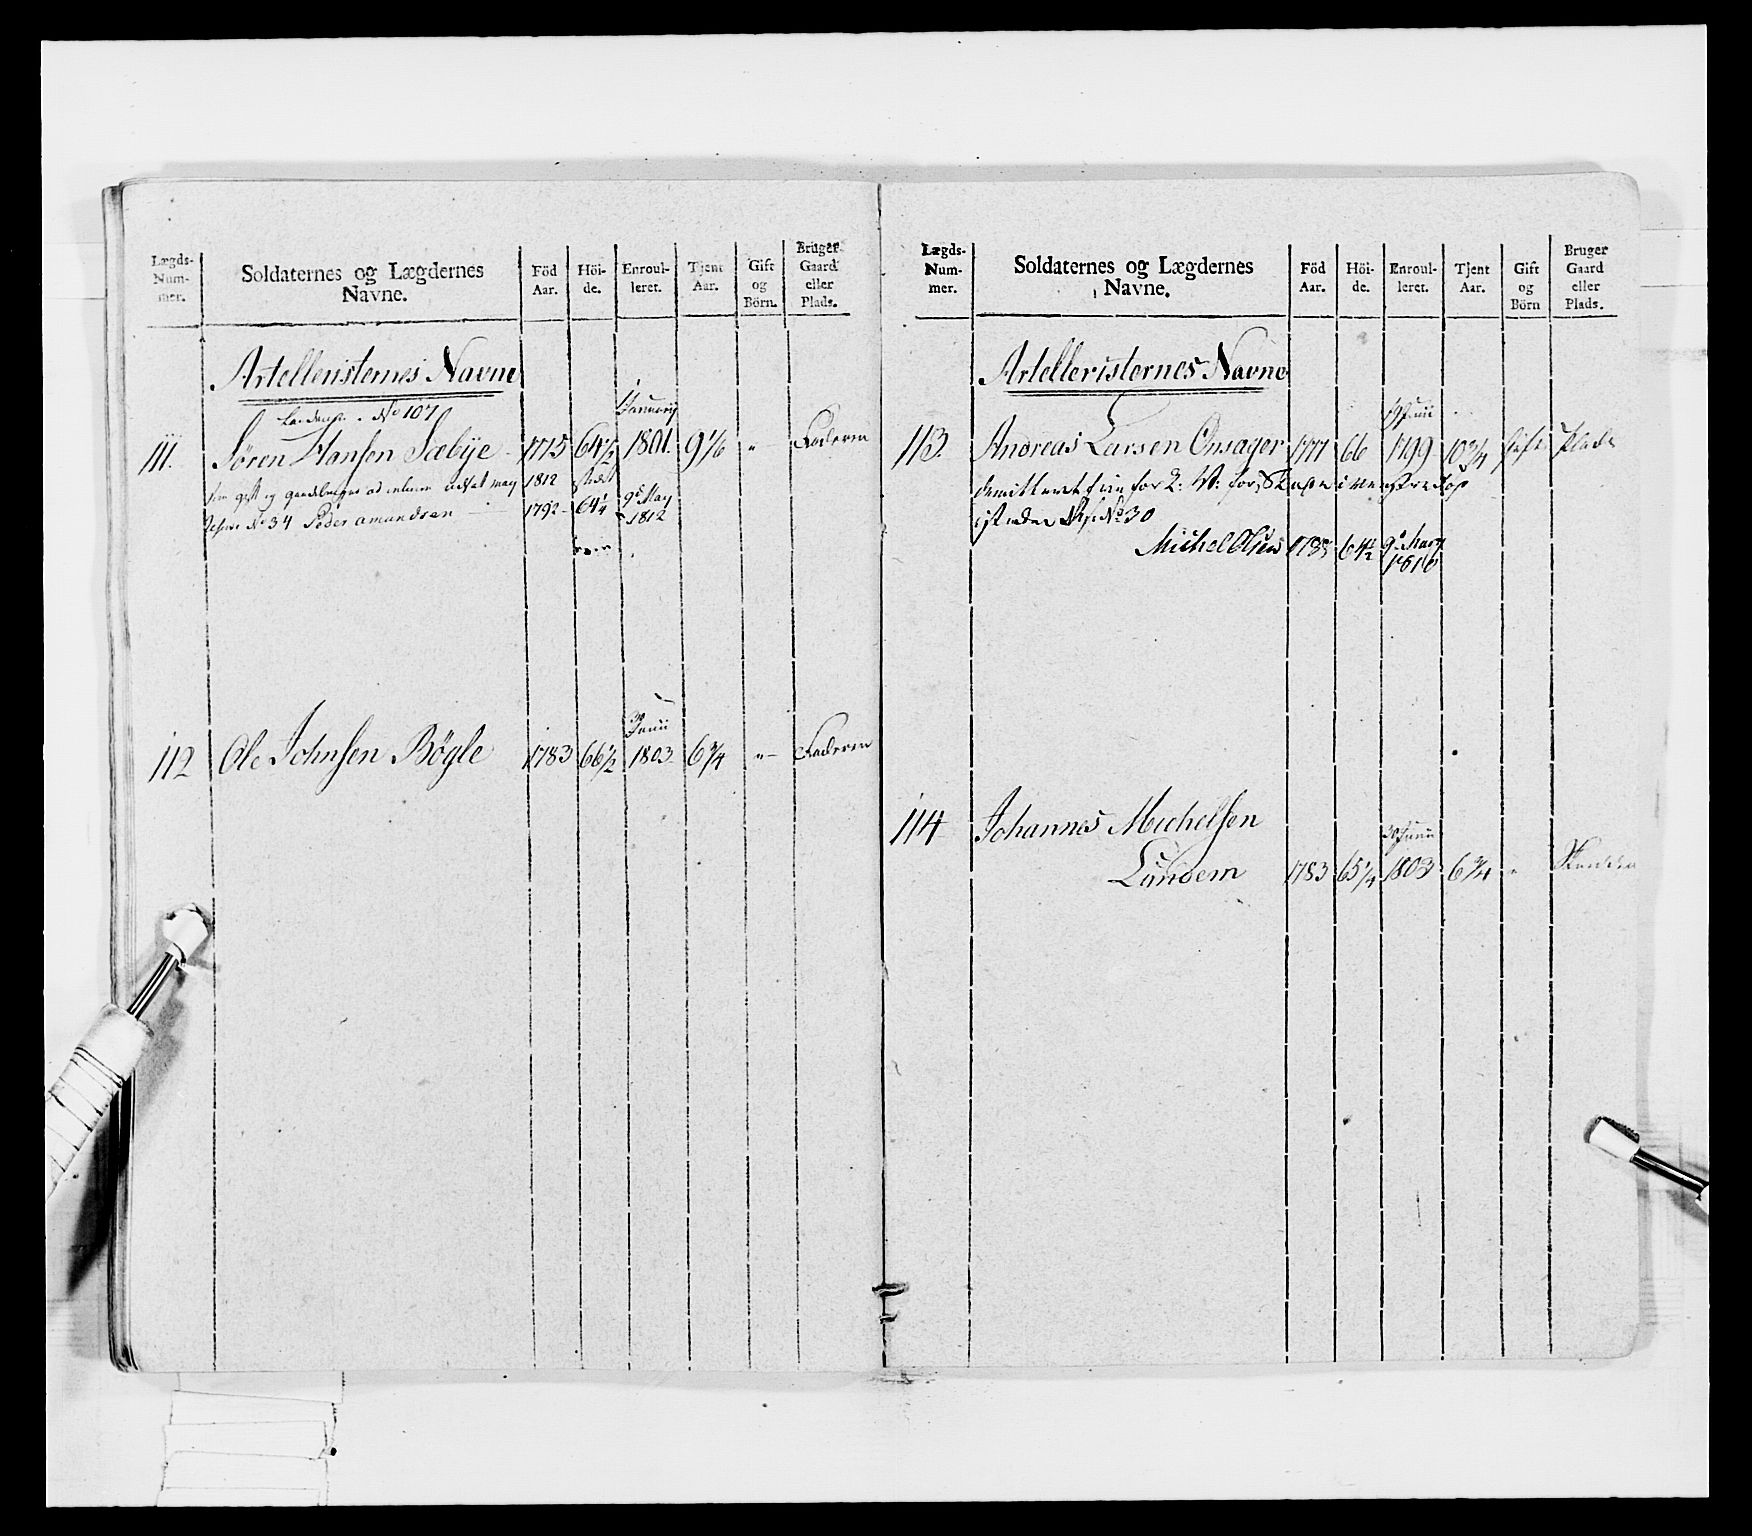 Lægds-
Num-
mer.
Soldaternes og Lægdernes
Navne.
Föd
Aar.
Höi-
de.
Enroul-
leret.
Tjent
Aar.
Gift
og
Börn.
Bruger
Gaard
eller
Plads.
Artelleristernes Navne
No 107
Januarij
111. Søren Hansen Sæbye 1775 64½ 1801. 9 1/6 "
1812
No 34 Peder Amundsen 1792 64¼ 9de May
1812
30
Junii
112 Ole Johnsen Bögle 1783 66½ 1803 6¾ "
Lægds-
Num-
mer.
Soldaternes og Lægdernes
Navne.
Föd
Aar.
Höi-
de.
Enroul-
leret.
Tjent
Aar.
Gift
og
Börn
Bruger
Gaard
eller
Plads.
Artelleristernes Navne
Junii
113. Andreas Larsen Onsager 1777 66 1799 10¾ gift Plads
No 30
Michel Olsen 1788 64½ 9de Marz
1810
114 Johannes Michelsen
30 Junii
Lundem 1783 65¼ 1803 6¾ "